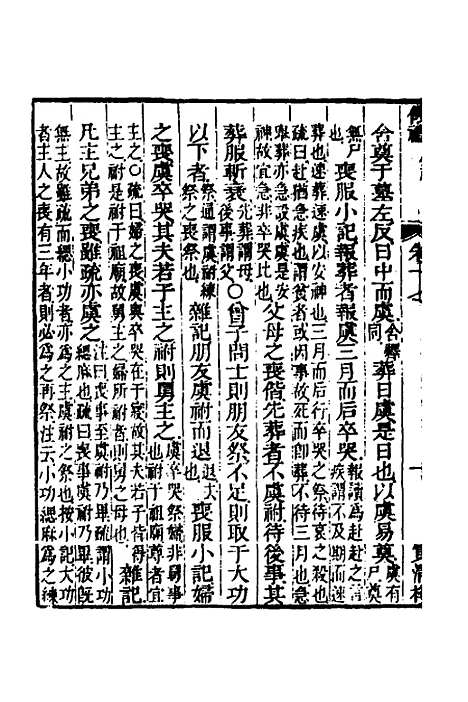 舍奠于墓左反日中而虞舍釋
同葬日虞是日也以虞易奠虞有
尸奠
無尸
也喪服小記報葬者報虞三月而后卒哭報讀為赴赴之言
疾謂不及期而速
葬也速葬速虞以安神也三月而后行卒哭之祭待哀之殺也
疏曰赴猶急疾也謂貧者或因事故死而即葬不待三月也急
葬亦急設虞虞是安
神故宜急非卒哭比父母之喪偕先葬者不虞祔待後事其
葬服斬衰先葬謂母
後事謂父○曾子問士則朋友祭不足則取于大功
以下者祭通謂虞祔練
祭之喪祭也雜記朋友虞祔而退退
也喪服小記婦
之喪虞卒哭其夫若子主之祔則舅主之虞卒哭祭婦非舅事
也祔于祖廟尊者宜
主之○疏曰婦之喪虞與卒哭在于寢故其夫若子皆得
主之祔是祔于祖廟故舅主之婦所祔者則舅之母也雜記
凡主兄弟之喪雖疏亦虞之注曰喪事至虞祔乃畢疏謂小功
緦麻也疏曰喪事虞祔乃畢彼既
無主故雖疏而緦小功者亦為之主虞祔之祭也按小記大功
者主人之喪有三年者則必為之再祭注云小功緦麻為之練